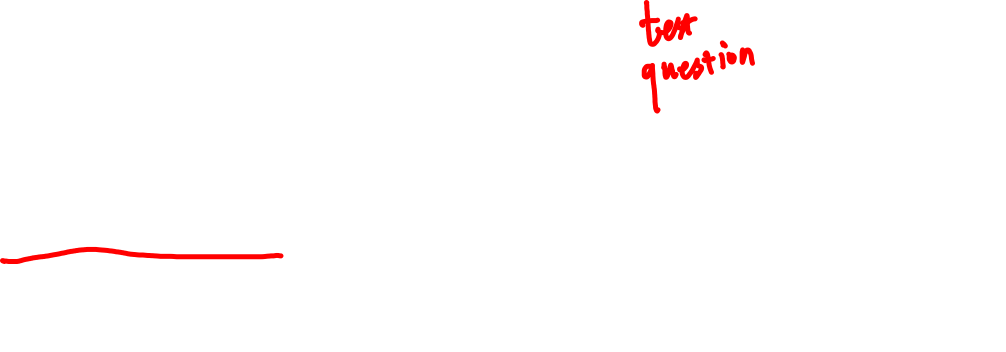 test
question